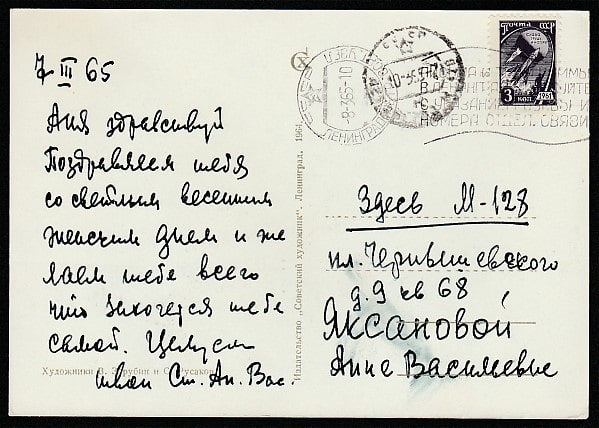 7 III 65
Аня здравствуй
Поздравляем тебя
со светлым весенним
женским днем и же
лаем тебе всего
что захочется тебе
самой. Целуем
твои Ст. Ан. Вас.
Художники В. Зарубин и С. Русаков
Издательство „Советский художник". Ленинград. 1964
ЛЕНИНГРАД
-8-365-10
ПОЧТА СССР
3 КОП
1961
НОМЕРА ОТДЕЛ. СВЯЗИ
Здесь М-128
пл. Чернышевского
д. 9 кв 68
Яксановой
Анне Васильевне